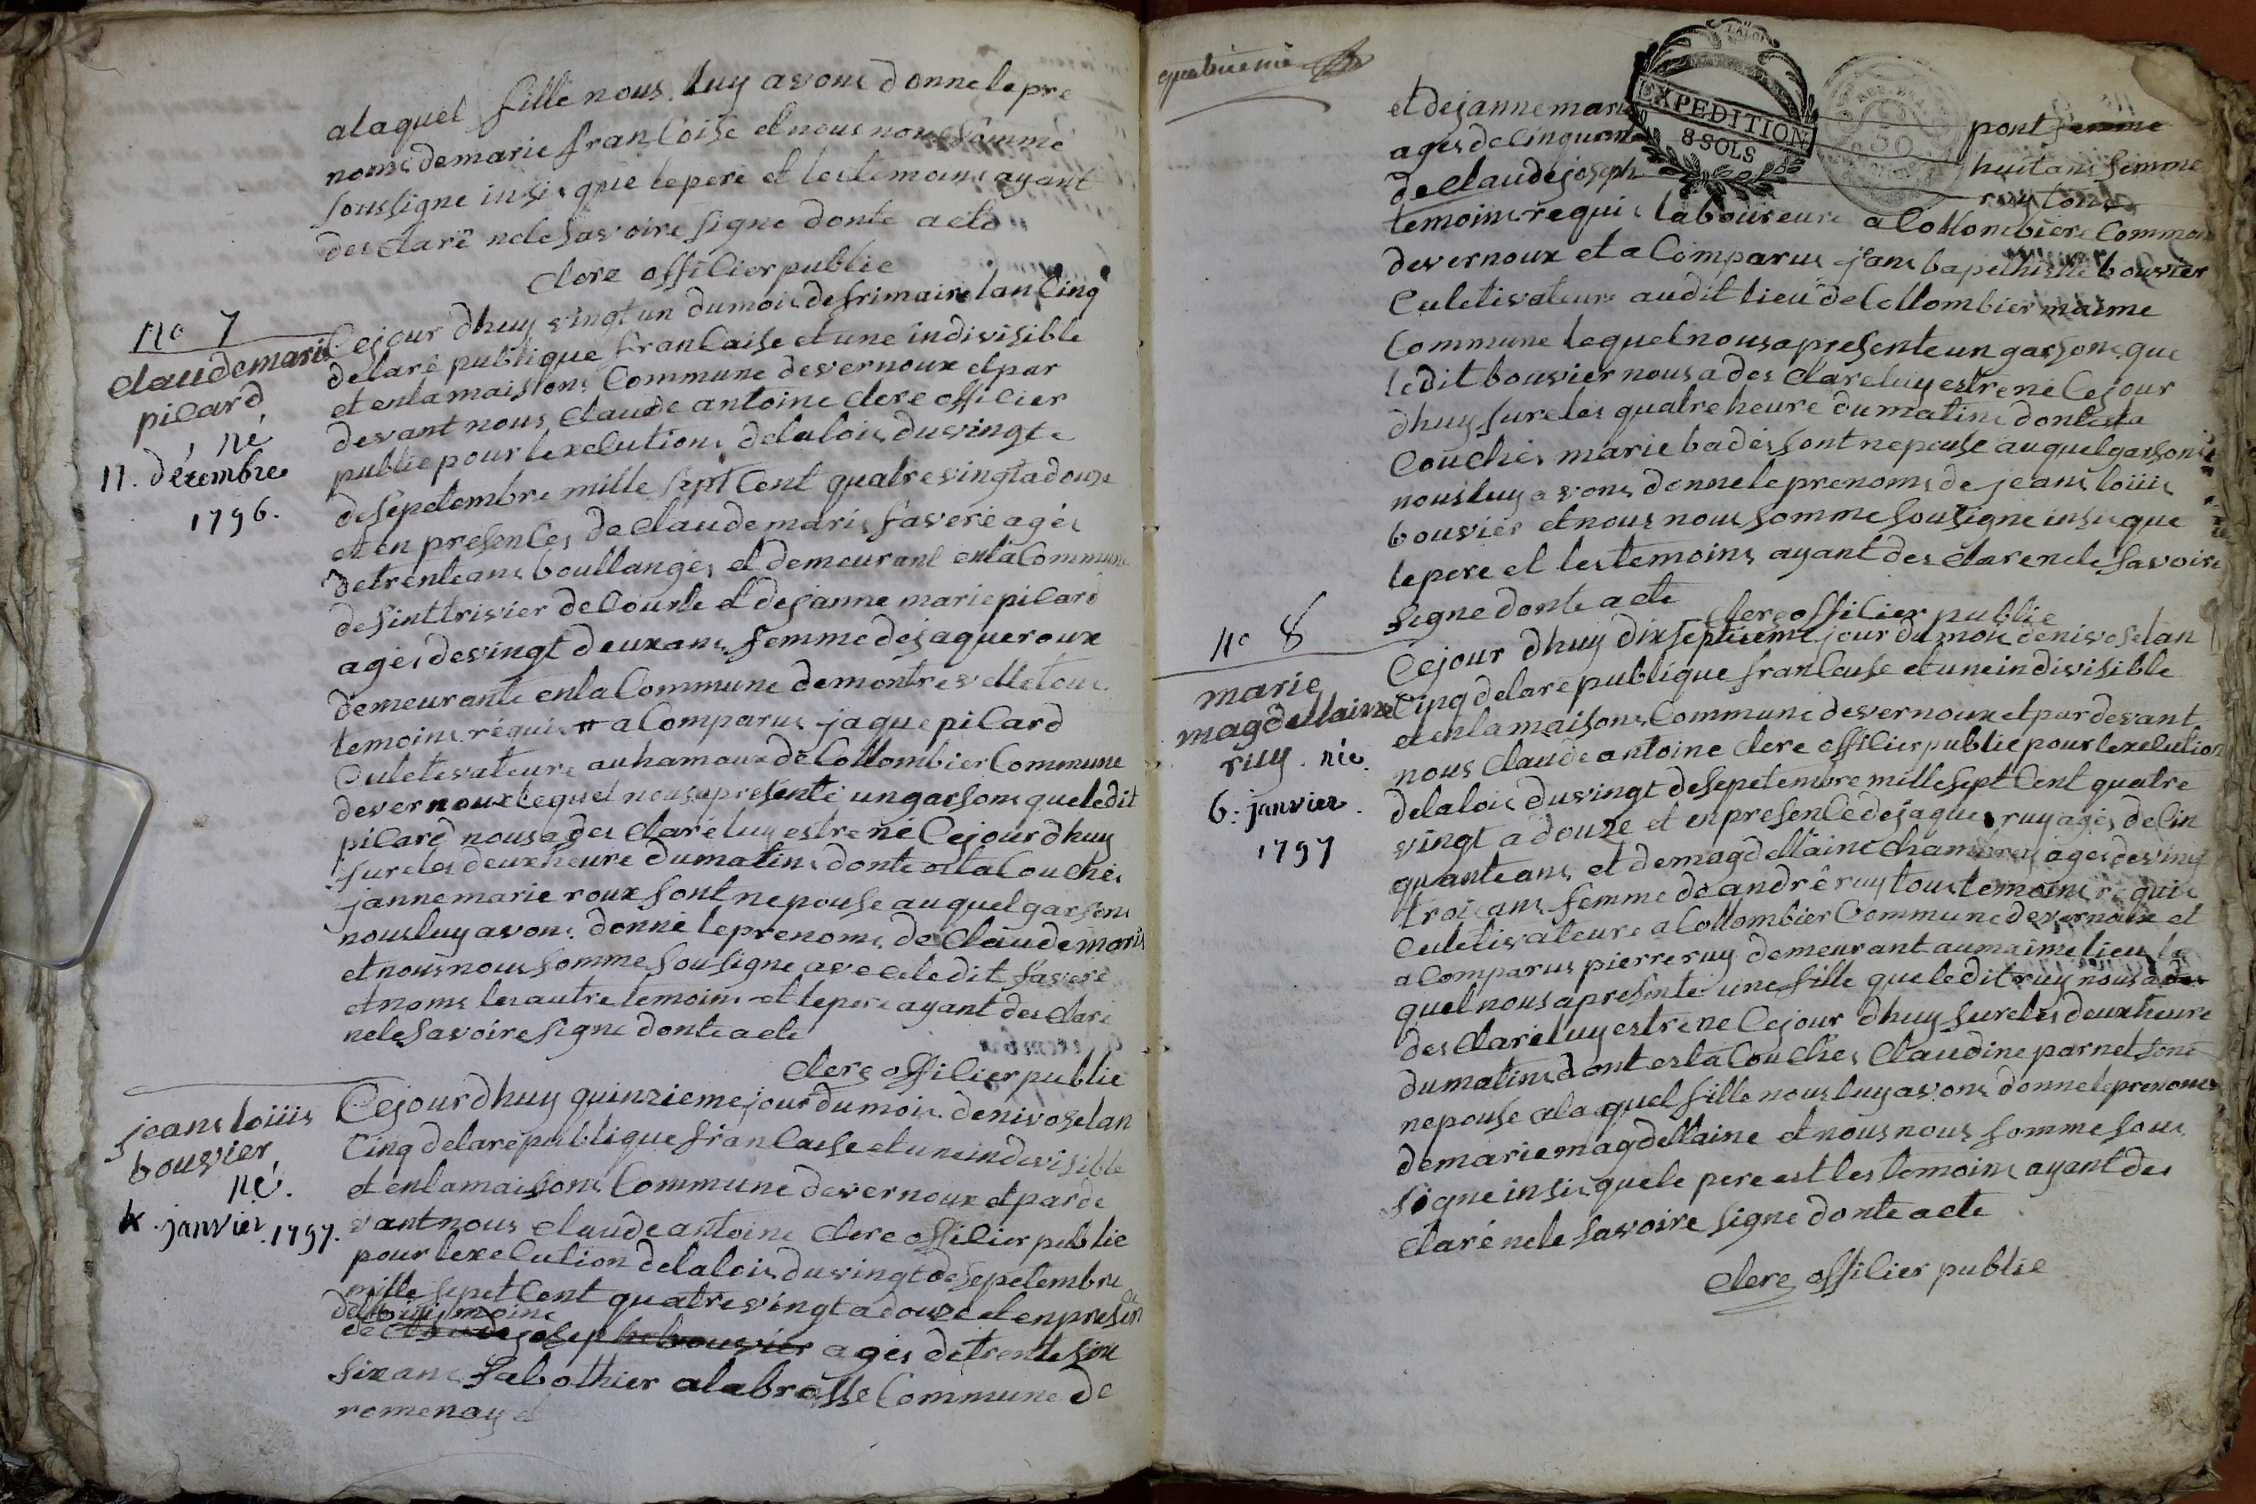 alaquel fille nous luy avons donne le pre
noms de marie franCoise et nous nous somme
sousigne insi que le pere et les temoins ayant
desClare ne le savoire signe donte acte
Clerc offiCier publie
no 7
Claude marie
piCard
né
11. décembre
1796.
Ce jour dhuy vingt un du mois de frimaire lan Cinq
de la re publique franCaise et une indivisible
et en la maisons Commune de vernoux et par
devant nous Claude antoine Clerc offiCier
publie pour lexeCutions de la lois du vingt
de sepetembre mille sept Cent quatre vingt a douze
et en presences de Claude marie favere agés
de trente ans boullangés et demeurant en la Commune
de sint trivier de Courte et de janne marie piCard
agés de vingt deux ans femme de jaque roux
demeurante en la Commune de montrevelle tous
temoins requis a Comparus jaque piCard
Culetivateure au hamaux de Collombier Commune
de vernoux lequel nous a presenté un garsons que ledit
piCard nous a des Claré luy estre né Ce jour dhuy
sur eles deux heure du matins donte esta Couchés
janne marie roux sont nepouse au quel garsons
nous luy avons donné le prenoms de Claude marie
et nous nous somme sousigne avec ledit favere
et noms les autre temoins et le pere ayant des Claré
ne le savoire signe donte acte
Clerc offiCier publie
jeans loiiis
bouvier
né.
4. janvier. 1797.
Ce jour dhuy quinzieme jour du mois de nivose lan
Cinq de la re publique franCaise et une indivisible
et en la maisons Commune de vernoux et par de
vant nous Claude antoine Clerc offiCier publie
pour lexeCution de la lois du vingt de sepetembre
mille sepet Cent quatre vingt a douze et en presen
de loiiis moine
de Claude joseph bouvier agés de trente six
six ans sabothier a la brosse Commune de
romenay et
quatrieme
EXPEDITION
8 SOLS
et de janne marie pont femme
agés de Cinquante huit ans femme
de Claude joseph ruy tous
temoins requis laboureure a Collombier Commune
de vernoux et a Comparus jans bapethiste bouvier
Culetivateure audit lieu de Collombier maime
Commune lequel nous a presente un garsons que
ledit bouvier nous a des Clare luy estre né Ce jour
dhuy sur eles quatre heure du matins donte esta
Couchés marie badés sont nepouse au quel garsons
nous luy avons donne le prenoms de jeans loiiis
bouvier et nous nous somme sousigne insi que
le pere et les temoins ayant des Clare ne le savoire
signe donte acte
Clerc offiCier publie
no 8
marie
magdellaine
ruy. née
6. janvier.
1797
Ce jour dhuy dix septieme jour du mois de nivose lan
Cinq de la re publique franCaise et une indivisible
et en la maisons Commune de vernoux et par devant
nous Claude antoine Clerc offiCier publie pour lexeCution
de la lois du vingt de sepetembre mille sept Cent quatre
vingt a douze et en presence de jaque ruy agés de Cin
quante ans et de magdellaine Chambrey agés de vingt
trois ans femme de andré ruy tous temoins requis
Culetivateure a Collombier Commune de vernoux et
a Comparus pierre ruy demeurant au maime lieu le
quel nous a presente une fille que ledit ruy nous a des
des Claré luy estre ne Ce jour dhuy sur eles deux heure
du matins dont esta Couchés Claudine parnet sont
nepouse a la quel fille nous luy avons donne le prenoms
de marie magdellaine et nous nous somme sous
signe insi que le pere est les temoins ayant des
Claré ne le savoire signe donte acte
Clerc offiCier publie